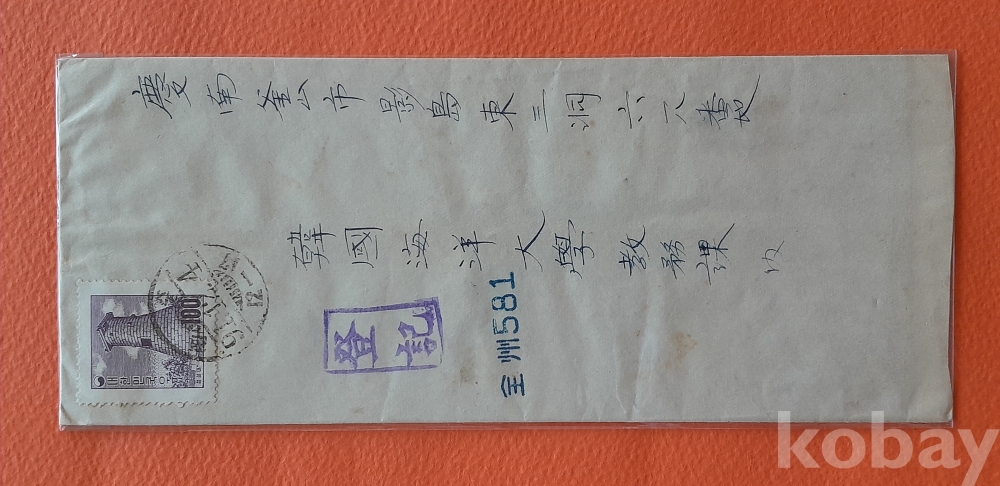 慶南釜山市影島東三洞六一八番地
韓國海洋大學敎務課 內
登記
全州581
100
대한민국우표
kobay